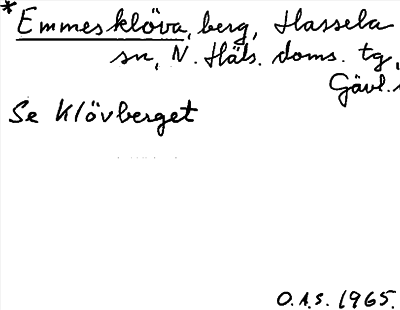 *Emmesklöva, berg, Hassela
sn, N. Häls. doms. tg,
Gävl.
Se Klövberget
O.A.S. 1965.